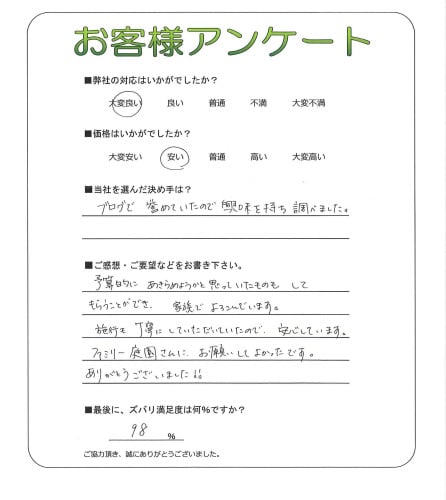 お客様アンケート
■弊社の対応はいかがでしたか?
大変良い 良い 普通 不満 大変不満
■価格はいかがでしたか?
大変安い 安い 普通 高い 大変高い
■当社を選んだ決め手は?
ブログで 誉めていたので 興味を持ち 調べました。
■ご感想・ご要望などをお書き下さい。
予算的に あきらめようかと思っていたものも して
もらうことができ、 家族で よろこんでいます。
施行も 丁寧に していただいていたので、 安心しています。
ファミリー庭園さんに お願いしてよかったです。
ありがとうございました!!
■最後に、ズバリ満足度は何%ですか?
98 %
ご協力頂き、誠にありがとうございました。